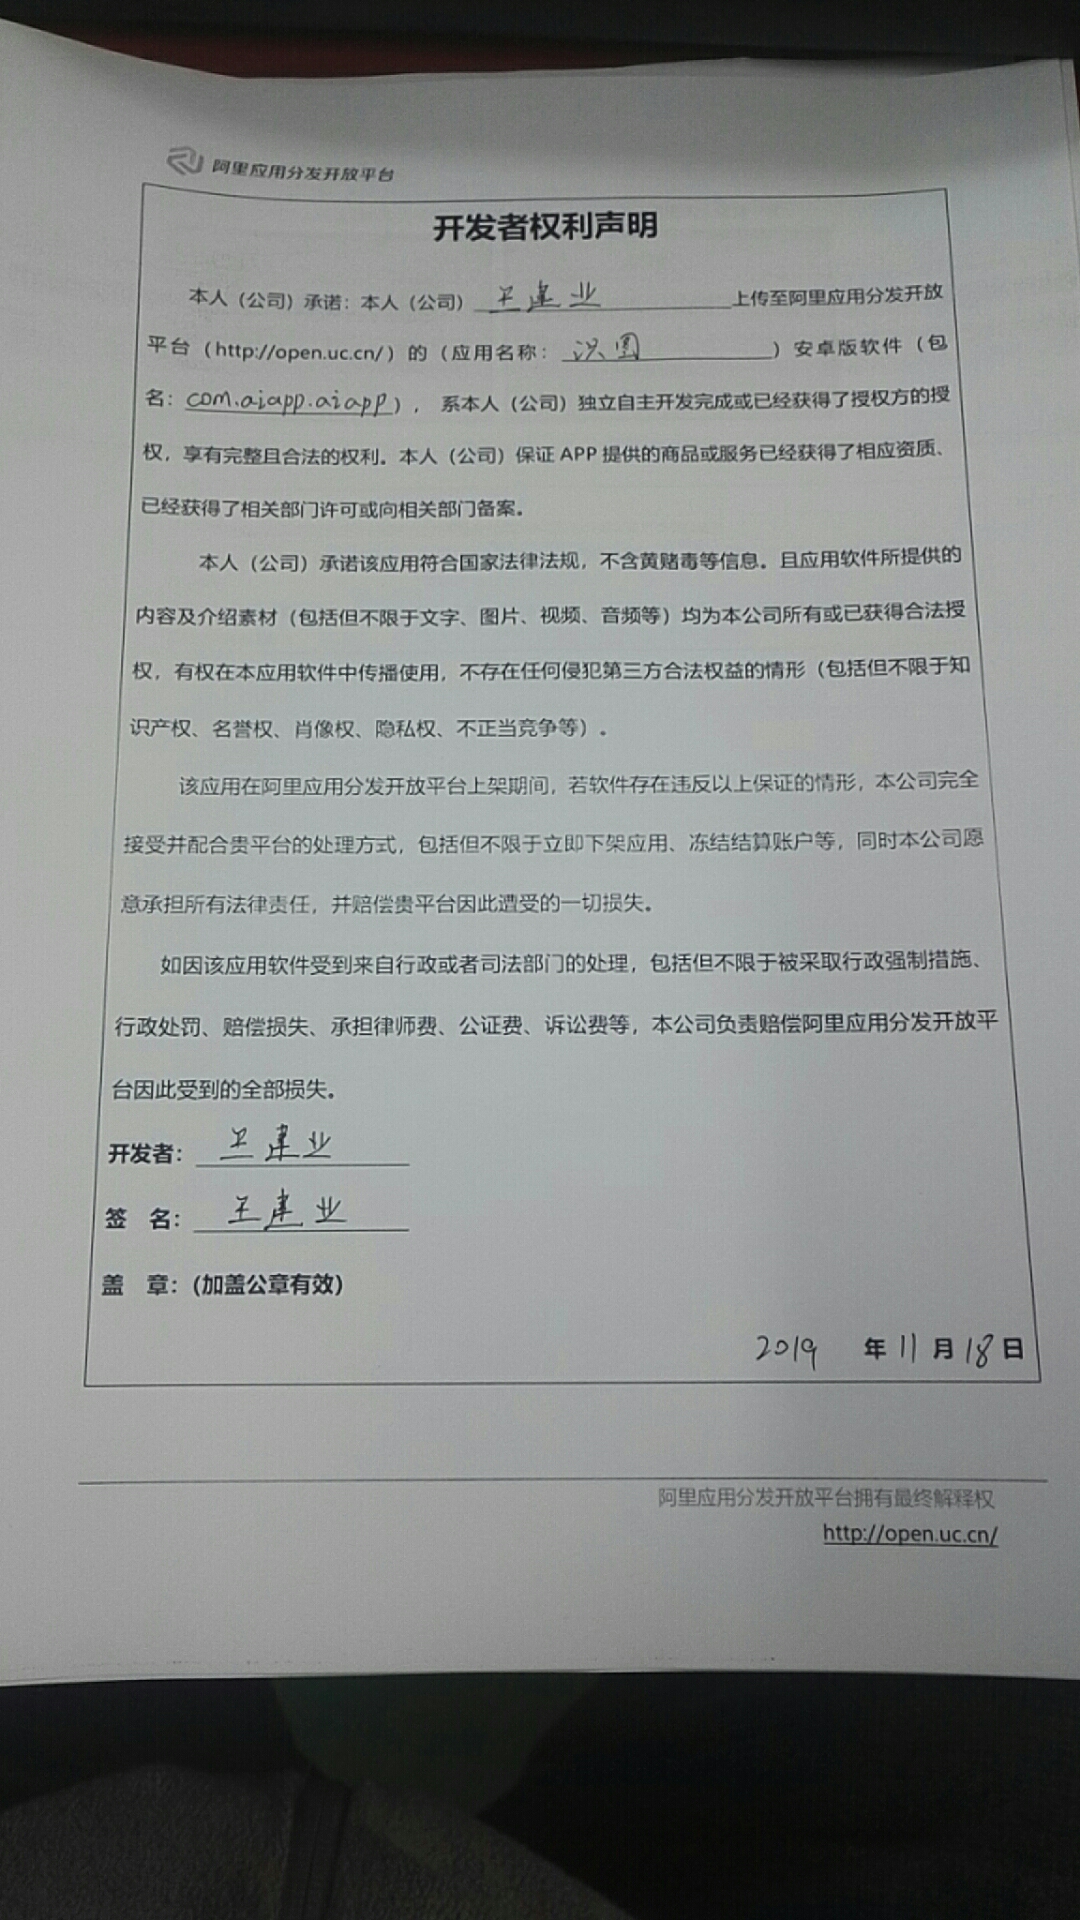 阿里应用分发开放平台
开发者权利声明
本人（公司）承诺：本人（公司） 王建业 上传至阿里应用分发开放
平台（http://open.uc.cn/）的（应用名称： 识图 ）安卓版软件（包
名：com.aiapp.aiapp），系本人（公司）独立自主开发完成或已经获得了授权方的授
权，享有完整且合法的权利。本人（公司）保证 APP 提供的商品或服务已经获得了相应资质、
已经获得了相关部门许可或向相关部门备案。
本人（公司）承诺该应用符合国家法律法规，不含黄赌毒等信息。且应用软件所提供的
内容及介绍素材（包括但不限于文字、图片、视频、音频等）均为本公司所有或已获得合法授
权，有权在本应用软件中传播使用，不存在任何侵犯第三方合法权益的情形（包括但不限于知
识产权、名誉权、肖像权、隐私权、不正当竞争等）。
该应用在阿里应用分发开放平台上架期间，若软件存在违反以上保证的情形，本公司完全
接受并配合贵平台的处理方式，包括但不限于立即下架应用、冻结结算账户等，同时本公司愿
意承担所有法律责任，并赔偿贵平台因此遭受的一切损失。
如因该应用软件受到来自行政或者司法部门的处理，包括但不限于被采取行政强制措施、
行政处罚、赔偿损失、承担律师费、公证费、诉讼费等，本公司负责赔偿阿里应用分发开放平
台因此受到的全部损失。
开发者： 王建业
签 名： 王建业
盖 章：(加盖公章有效)
2019 年 11 月 18 日
阿里应用分发开放平台拥有最终解释权
http://open.uc.cn/